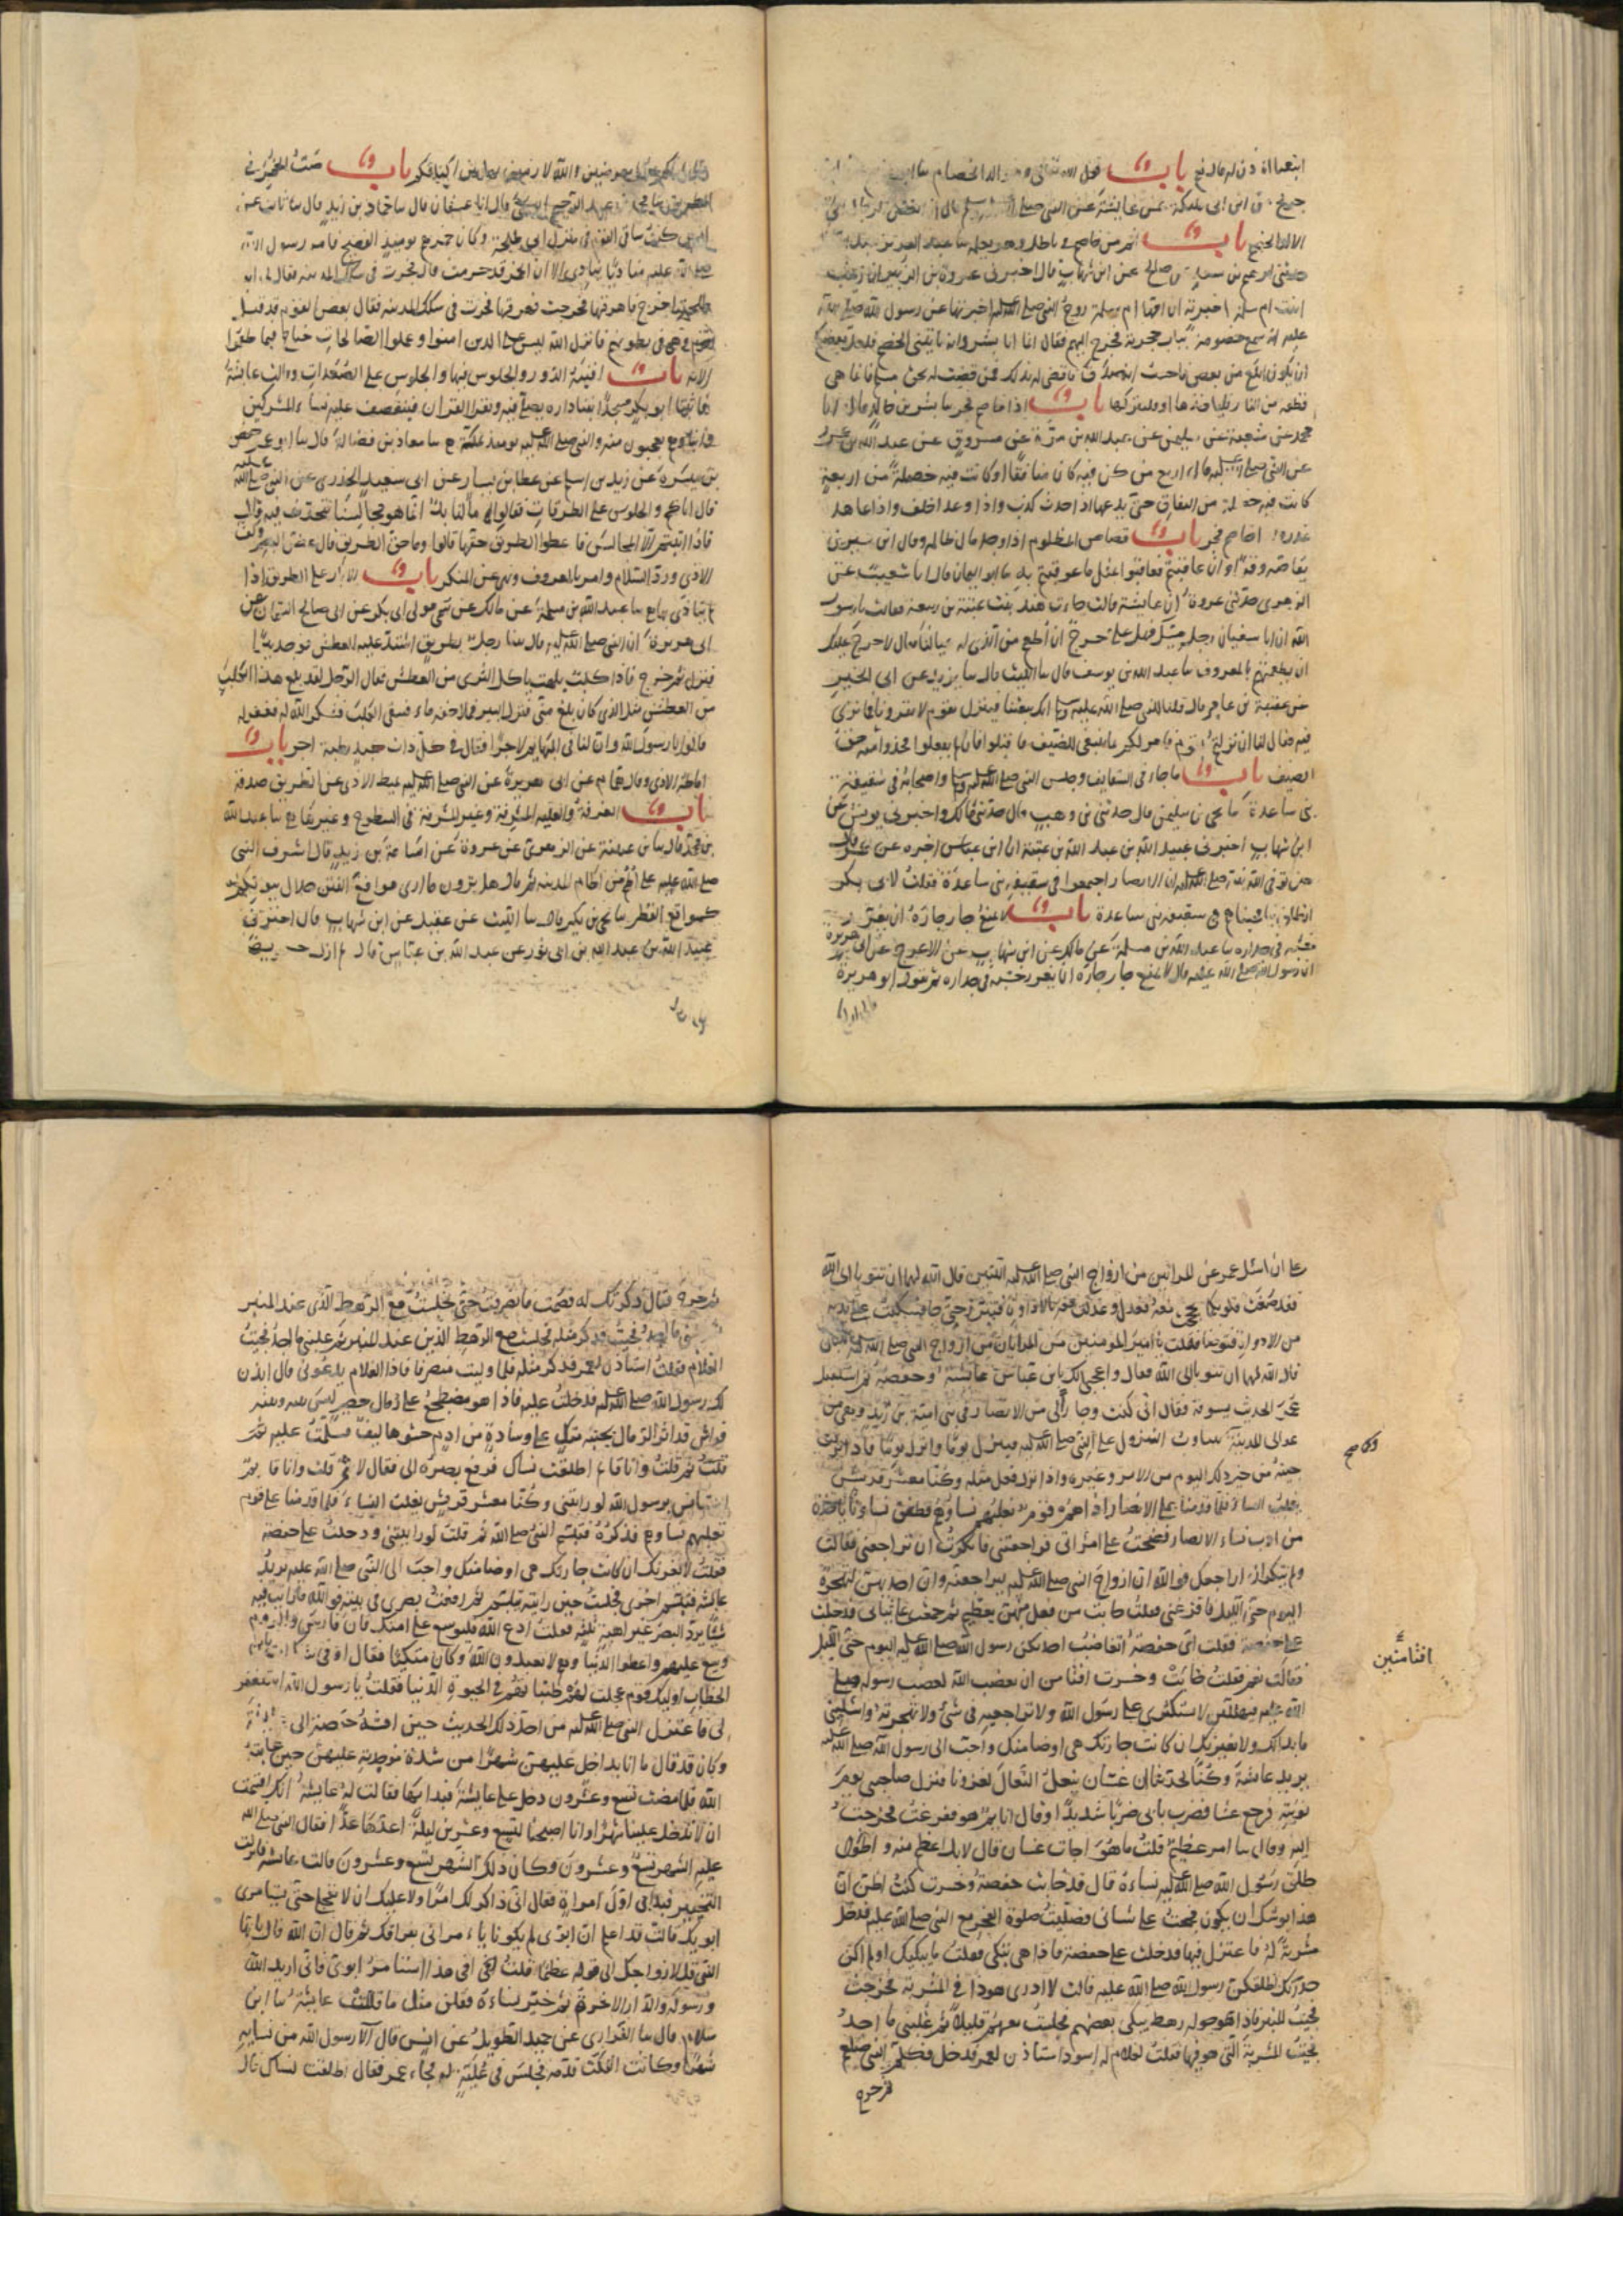 باب قول الله تعالى وهو الد الخصام
جريج عن ابن ابي مليكة عن عايشة عن النبي صلى الله عليه وسلم قال ان ابغض الرجال الى
الالد الخصم باب اثم من خاصم في باطل وهو يعلمه
ابراهيم بن سعد عن صالح عن ابن شهاب قال اخبرني عروة بن الزبير ان زينب
ابنت ام سلمة اخبرته ان امها ام سلمة زوج النبي صلى الله عليه اخبرتها عن رسول الله صلى الله
عليه انه سمع خصومة بباب حجرته فخرج اليهم فقال انما انا بشر وانه ياتيني الخصم فلعل بعضكم
ان يكون ابلغ من بعض فاحسب انه صدق فاقضي له بذلك فمن قضيت له بحق مسلم فانما هي
قطعة من النار فلياخذها او فليتركها باب اذا خاصم فجر ما بشر بن خالد قال انا
محمد عن شعبة عن سليمن عن عبد الله بن مرة عن مسروق عن عبد الله بن عمرو
عن النبي صلى الله عليه قال اربع من كن فيه كان منافقا او كانت فيه خصلة من اربعة
كانت فيه خصلة من النفاق حتى يدعها اذا حدث كذب واذا وعد اخلف واذا عاهد
غدر واذا خاصم فجر باب قصاص المظلوم اذا وجد مال ظالمه وقال ابن سيرين
يقاصه وقرا وان عاقبتم فعاقبوا بمثل ما عوقبتم به ما ابو اليمان قال انا شعيب عن
الزهري حدثني عروة ان عايشة قالت جاءت هند بنت عتبة بن ربيعة فقالت يا رسول
الله ان ابا سفيان رجل مسيك فهل علي حرج ان اطعم من الذي له عيالنا قال لا حرج عليك
ان تطعميهم بالمعروف ما عبد الله بن يوسف قال ما الليث قال ما يزيد عن ابي الخير
عن عقبة بن عامر قال قلنا للنبي صلى الله عليه وسلم انك تبعثنا فننزل بقوم لا يقرونا فما ترى
فيه فقال لنا ان نزلتم بقوم فامر لكم بما ينبغي للضيف فاقبلوا فان لم يفعلوا فخذوا منهم حق
الضيف باب ما جاء في السقايف وجلس النبي صلى الله عليه وسلم واصحابه في سقيفة
بني ساعدة ما يحيى بن سليمن قال حدثني ابن وهب قال حدثني مالك واخبرني يونس عن
ابن شهاب اخبرني عبيد الله بن عبد الله بن عتبة ان ابن عباس اخبره عن عمر قال
حين توفى الله نبيه صلى الله عليه ان الانصار اجتمعوا في سقيفة بني ساعدة فقلت لابي بكر
انطلق بنا فجيناهم في سقيفة بني ساعدة باب لا يمنع جار جاره ان يغرز
خشبه في جداره ما عبد الله بن مسلمة عن مالك عن ابن شهاب عن الاعرج عن ابي هريرة
ان رسول الله صلى الله عليه قال لا يمنع جار جاره ان يغرز خشبه في جداره ثم يقول ابو هريرة
مالي اراكم
عنها معرضين والله لارمين بها بين اكتافكم باب صب الخمر في
الطريق ما محمد بن عبد الرحيم ابو يحيى قال انا عفان قال ما حماد بن زيد قال ما ثابت عن
انس كنت ساقي القوم في منزل ابي طلحة وكان خمرهم يومئذ الفضيخ فامر رسول الله
صلى الله عليه مناديا ينادي الا ان الخمر قد حرمت قال فجرت في سكك المدينة فقال لي ابو
طلحة اخرج فاهرقها فخرجت فهرقتها فجرت في سكك المدينة فقال بعض القوم قد قتل
قوم وهي في بطونهم فانزل الله ليس على الذين امنوا وعملوا الصالحات جناح فيما طعموا
الاية باب افنية الدور والجلوس فيها والجلوس على الصعدات وقالت عايشة
فابتنى ابو بكر مسجدا بفناء داره يصلي فيه ويقرا القران فيتقصف عليه نساء المشركين
وابناؤهم يعجبون منه والنبي صلى الله عليه يومئذ بمكة ما معاذ بن فضالة قال ما ابو عمر حفص
بن ميسرة عن زيد بن اسلم عن عطا بن يسار عن ابي سعيد الخدري عن النبي صلى الله عليه
قال اياكم والجلوس على الطرقات فقالوا ما لنا بد انما هو مجالسنا نتحدث فيه قال
فاذا اتيتم الا المجالس فاعطوا الطريق حقها قالوا وما حق الطريق قال غض البصر وكف
الاذى ورد السلام وامر بالمعروف ونهي عن المنكر باب الابار على الطريق اذا
لم يتاذى بها ما عبد الله بن مسلمة عن مالك عن سمي مولى ابي بكر عن ابي صالح السمان عن
ابي هريرة ان النبي صلى الله عليه قال بينا رجل بطريق اشتد عليه العطش فوجد بيرا
فنزل ثم خرج فاذا كلب يلهث ياكل الثرى من العطش فقال الرجل لقد بلغ هذا الكلب
من العطش مثل الذي كان بلغ مني فنزل البير فملا خفه ماء فسقى الكلب فشكر الله له فغفر له
قالوا يا رسول الله وان لنا في البهايم لاجرا فقال في كل ذات كبد رطبة اجر باب
اماطة الاذى وقال همام عن ابي هريرة عن النبي صلى الله عليه يميط الاذى عن الطريق صدقة
باب الغرفة والعلية المشرفة وغير المشرفة في السطوح وغيرها ما عبد الله
بن محمد قال ما ابن عيينة عن الزهري عن عروة عن اسامة بن زيد قال اشرف النبي
صلى الله عليه على اطم من اطام المدينة ثم قال هل ترون ما ارى مواقع الفتن خلال بيوتكم
كمواقع القطر ما يحيى بن بكير قال ما الليث عن عقيل عن ابن شهاب قال اخبرني
عبيد الله بن عبد الله بن ابي ثور عن عبد الله بن عباس قال لم ازل حريصا
على ان اسئل عمر عن المراتين من ازواج النبي صلى الله عليه اللتين قال الله لهما ان تتوبا الى الله
فقد صغت قلوبكما فحججت معه فعدل وعدلت معه بالاداوة فتبرز حتى جاء فسكبت على يديه
من الاداوة فتوضا فقلت يا امير المومنين من المراتان من ازواج النبي صلى الله عليه اللتان
قال الله لهما ان تتوبا الى الله فقال واعجبي لك يا بن عباس عايشة وحفصة ثم استقبل
عمر الحديث يسوقه فقال اني كنت وجار لي من الانصار في بني امية بن زيد وهي من
عوالي المدينة وكنا نتناوب النزول على النبي صلى الله عليه فينزل يوما وانزل يوما فاذا نزلت
جيته من خبر ذلك اليوم من الامر وغيره واذا نزل فعل مثله وكنا معشر قريش
نغلب النساء فلما قدمنا على الانصار اذا هم قوم تغلبهم نساؤهم فطفق نساؤنا ياخذن
من ادب نساء الانصار فصحت على امراتي فراجعتني فانكرت ان تراجعني فقالت
ولم تنكر ان اراجعك فوالله ان ازواج النبي صلى الله عليه ليراجعنه وان احديهن لتهجره
اليوم حتى الليل فافزعني فقلت خابت من فعل منهن بعظيم ثم جمعت علي ثيابي فدخلت
على حفصة فقلت اي حفصة اتغاضب احديكن رسول الله صلى الله عليه اليوم حتى الليل
فقالت نعم فقلت خابت وخسرت افتامن ان يغضب الله لغضب رسوله صلى
الله عليه فتهلكين لا تستكثري على رسول الله ولا تراجعيه في شئ ولا تهجريه واسئليني
ما بدا لك ولا يغرنك ان كانت جارتك هي اوضا منك واحب الى رسول الله صلى الله عليه
يريد عايشة وكنا تحدثنا ان غسان ينعل النعال لغزونا فنزل صاحبي يوم
نوبته فرجع عشا فضرب بابي ضربا شديدا وقال انايم هو ففزعت فخرجت
اليه وقال حدث امر عظيم قلت ما هو اجات غسان قال لا بل اعظم منه واطول
طلق رسول الله صلى الله عليه نساءه قال قد خابت حفصة وخسرت كنت اظن ان
هذا يوشك ان يكون فجمعت علي ثيابي فصليت صلوة الفجر مع النبي صلى الله عليه فدخل
مشربة له فاعتزل فيها فدخلت على حفصة فاذا هي تبكي فقلت ما يبكيك اولم اكن
حذرتك اطلقكن رسول الله صلى الله عليه قالت لا ادري هو ذا في المشربة فخرجت
فجيت المنبر فاذا حوله رهط يبكي بعضهم فجلست معهم قليلا ثم غلبني ما اجد
فجيت المشربة التي هو فيها فقلت لغلام له اسود استاذن لعمر فدخل فكلم النبي صلعم
ثم خرج
افتامنين
ثم خرج فقال ذكرتك له فصمت فانصرفت حتى جلست مع الرهط الذي عند المنبر
ثم غلبني ما اجد فجيت فذكر مثله فجلست مع الرهط الذين عند المنبر ثم غلبني ما اجد فجيت
الغلام فقلت استاذن لعمر فذكر مثله فلما وليت منصرفا فاذا الغلام يدعوني قال اذن
لك رسول الله صلى الله عليه فدخلت عليه فاذا هو مضطجع على رمال حصير ليس بينه وبينه
فراش قد اثر الرمال بجنبه متكي على وسادة من ادم حشوها ليف فسلمت عليه ثم
قلت وانا قايم اطلقت نساك فرفع بصره الي فقال لا ثم قلت وانا قايم
استانس يرسول الله لو رايتني وكنا معشر قريش نغلب النساء فلما قدمنا على قوم
تغلبهم نساؤهم فذكره فتبسم النبي صلى الله ثم قلت لو رايتني ودخلت على حفصة
فقلت لا يغرنك ان كانت جارتك هي اوضا منك واحب الى النبي صلى الله عليه يريد
عايشة فتبسم اخرى فجلست حين رايته تبسم ثم رفعت بصري في بيته فوالله ما رايت فيه
شيئا يرد البصر غير اهبة ثلثة فقلت ادع الله فليوسع على امتك فان فارس والروم
وسع عليهم واعطوا الدنيا وهم لا يعبدون الله وكان متكئا فقال اوفي شك انت يا بن
الخطاب اوليك قوم عجلت لهم طيباتهم في الحيوة الدنيا فقلت يا رسول الله استغفر
لي فاعتزل النبي صلى الله عليه من اجل ذلك الحديث حين افشته حفصة الى عايشة
وكان قد قال ما انا بداخل عليهن شهرا من شدة موجدته عليهن حين عاتبه
الله فلما مضت تسع وعشرون دخل على عايشة فبدا بها فقالت له عايشة انك اقسمت
ان لا تدخل علينا شهرا وانا اصبحنا لتسع وعشرين ليلة اعدها عدا فقال النبي صلى الله
عليه الشهر تسع وعشرون وكان ذلك الشهر تسع وعشرون قالت عايشة فانزلت
التخيير فبدا بي اول امراة فقال اني ذاكر لك امرا ولا عليك ان لا تعجلي حتى تستامري
ابويك قالت قد اعلم ان ابوي لم يكونا يامراني بفراقك ثم قال ان الله قال يايها
النبي قل لازواجك الى قوله عظيما قلت افي هذا استامر ابوي فاني اريد الله
ورسوله والدار الاخرة ثم خير نساءه فقلن مثل ما قالت عايشة ما ابن
سلام قال ما الفزاري عن حميد الطويل عن انس قال آلا رسول الله من نسايه
شهرا وكانت انفكت قدمه فجلس في علية له فجاء عمر فقال اطلقت نساك قال